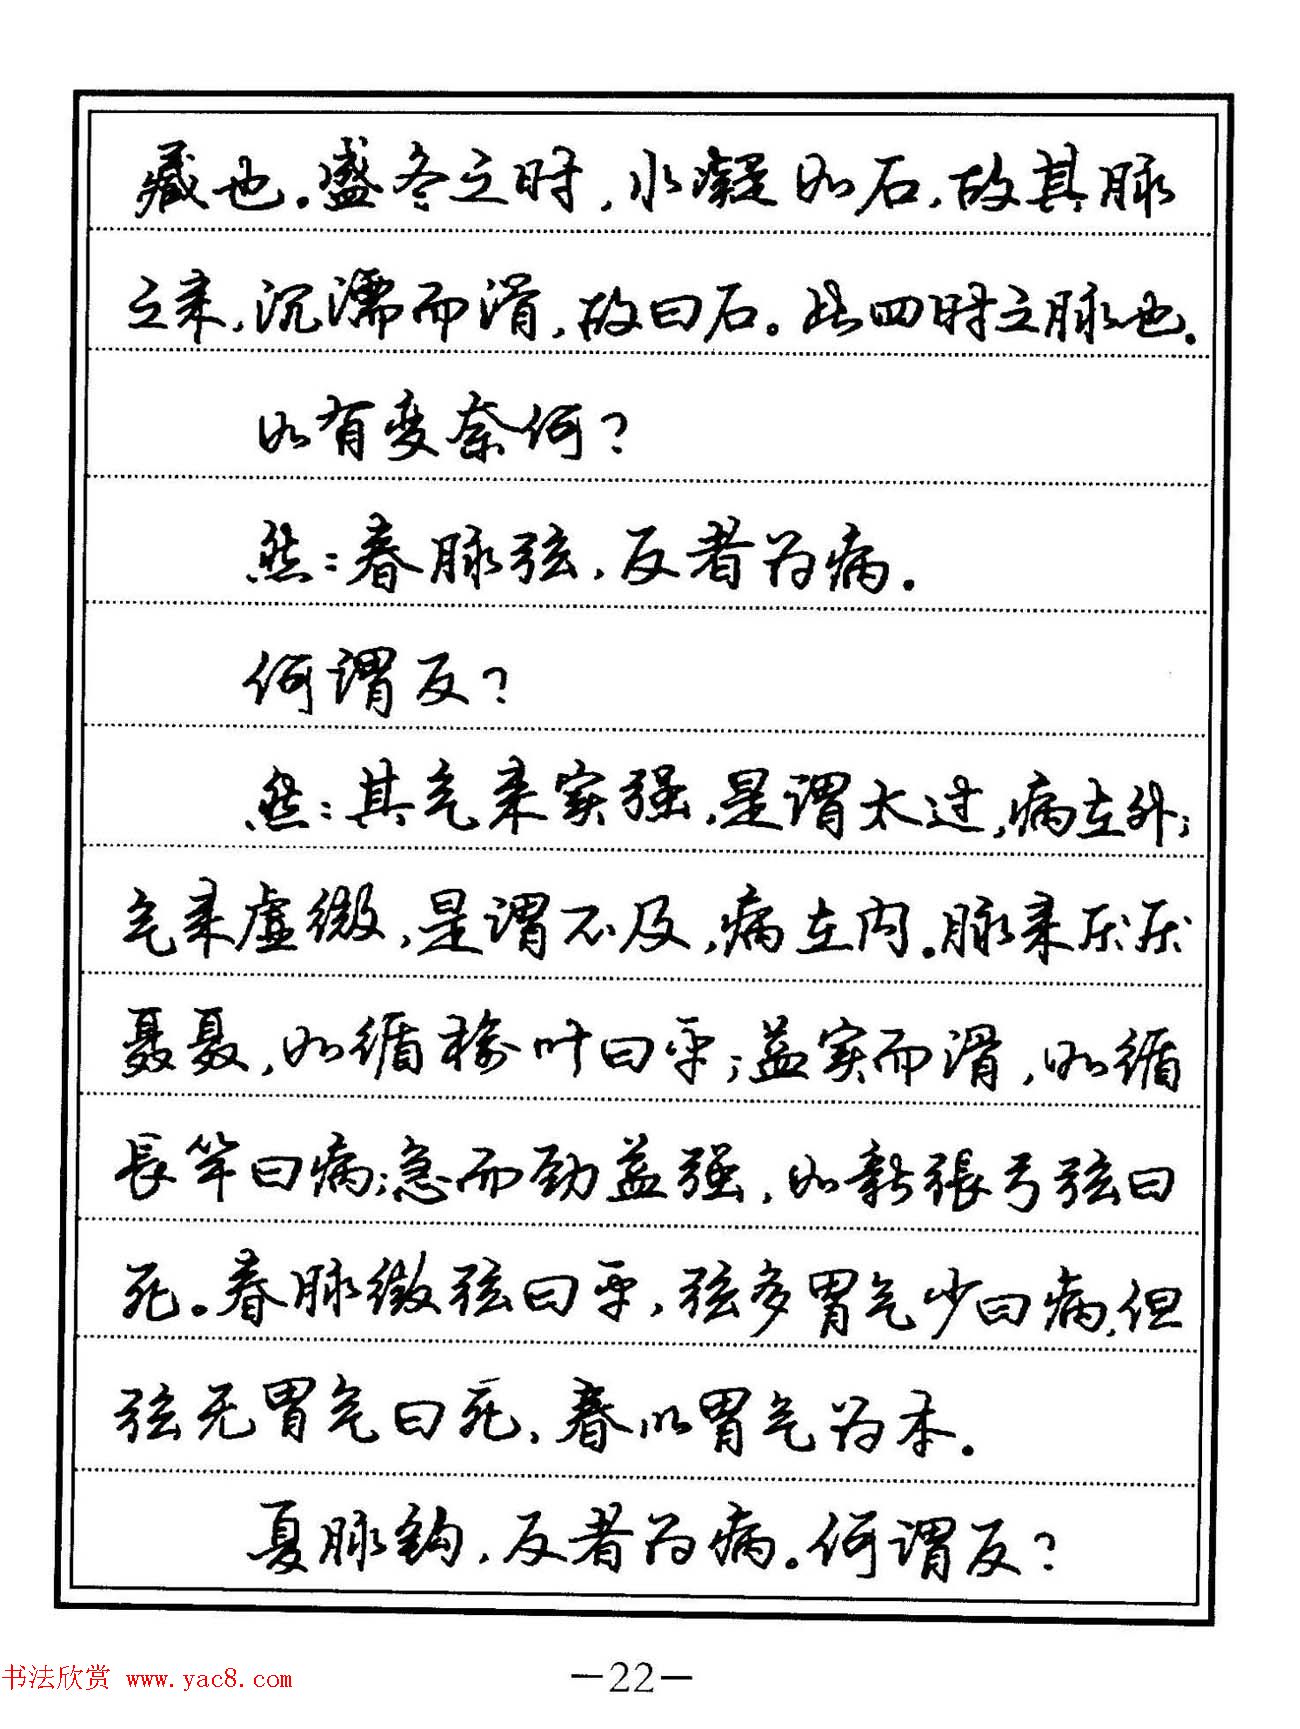 藏也。盛冬之时，水凝如石，故其脉
之来，沉濡而滑，故曰石。此四时之脉也。
如有变奈何？
然：春脉弦，反者为病。
何谓反？
然：其气来实强，是谓太过，病在外；
气来虚微，是谓不及，病在内。脉来厌厌
聂聂，如循榆叶曰平；益实而滑，如循
長竿曰病；急而劲益强，如新張弓弦曰
死。春脉微弦曰平，弦多胃气少曰病，但
弦无胃气曰死，春以胃气为本。
夏脉钩，反者为病。何谓反？
—22—
书法欣赏 www.yac8.com